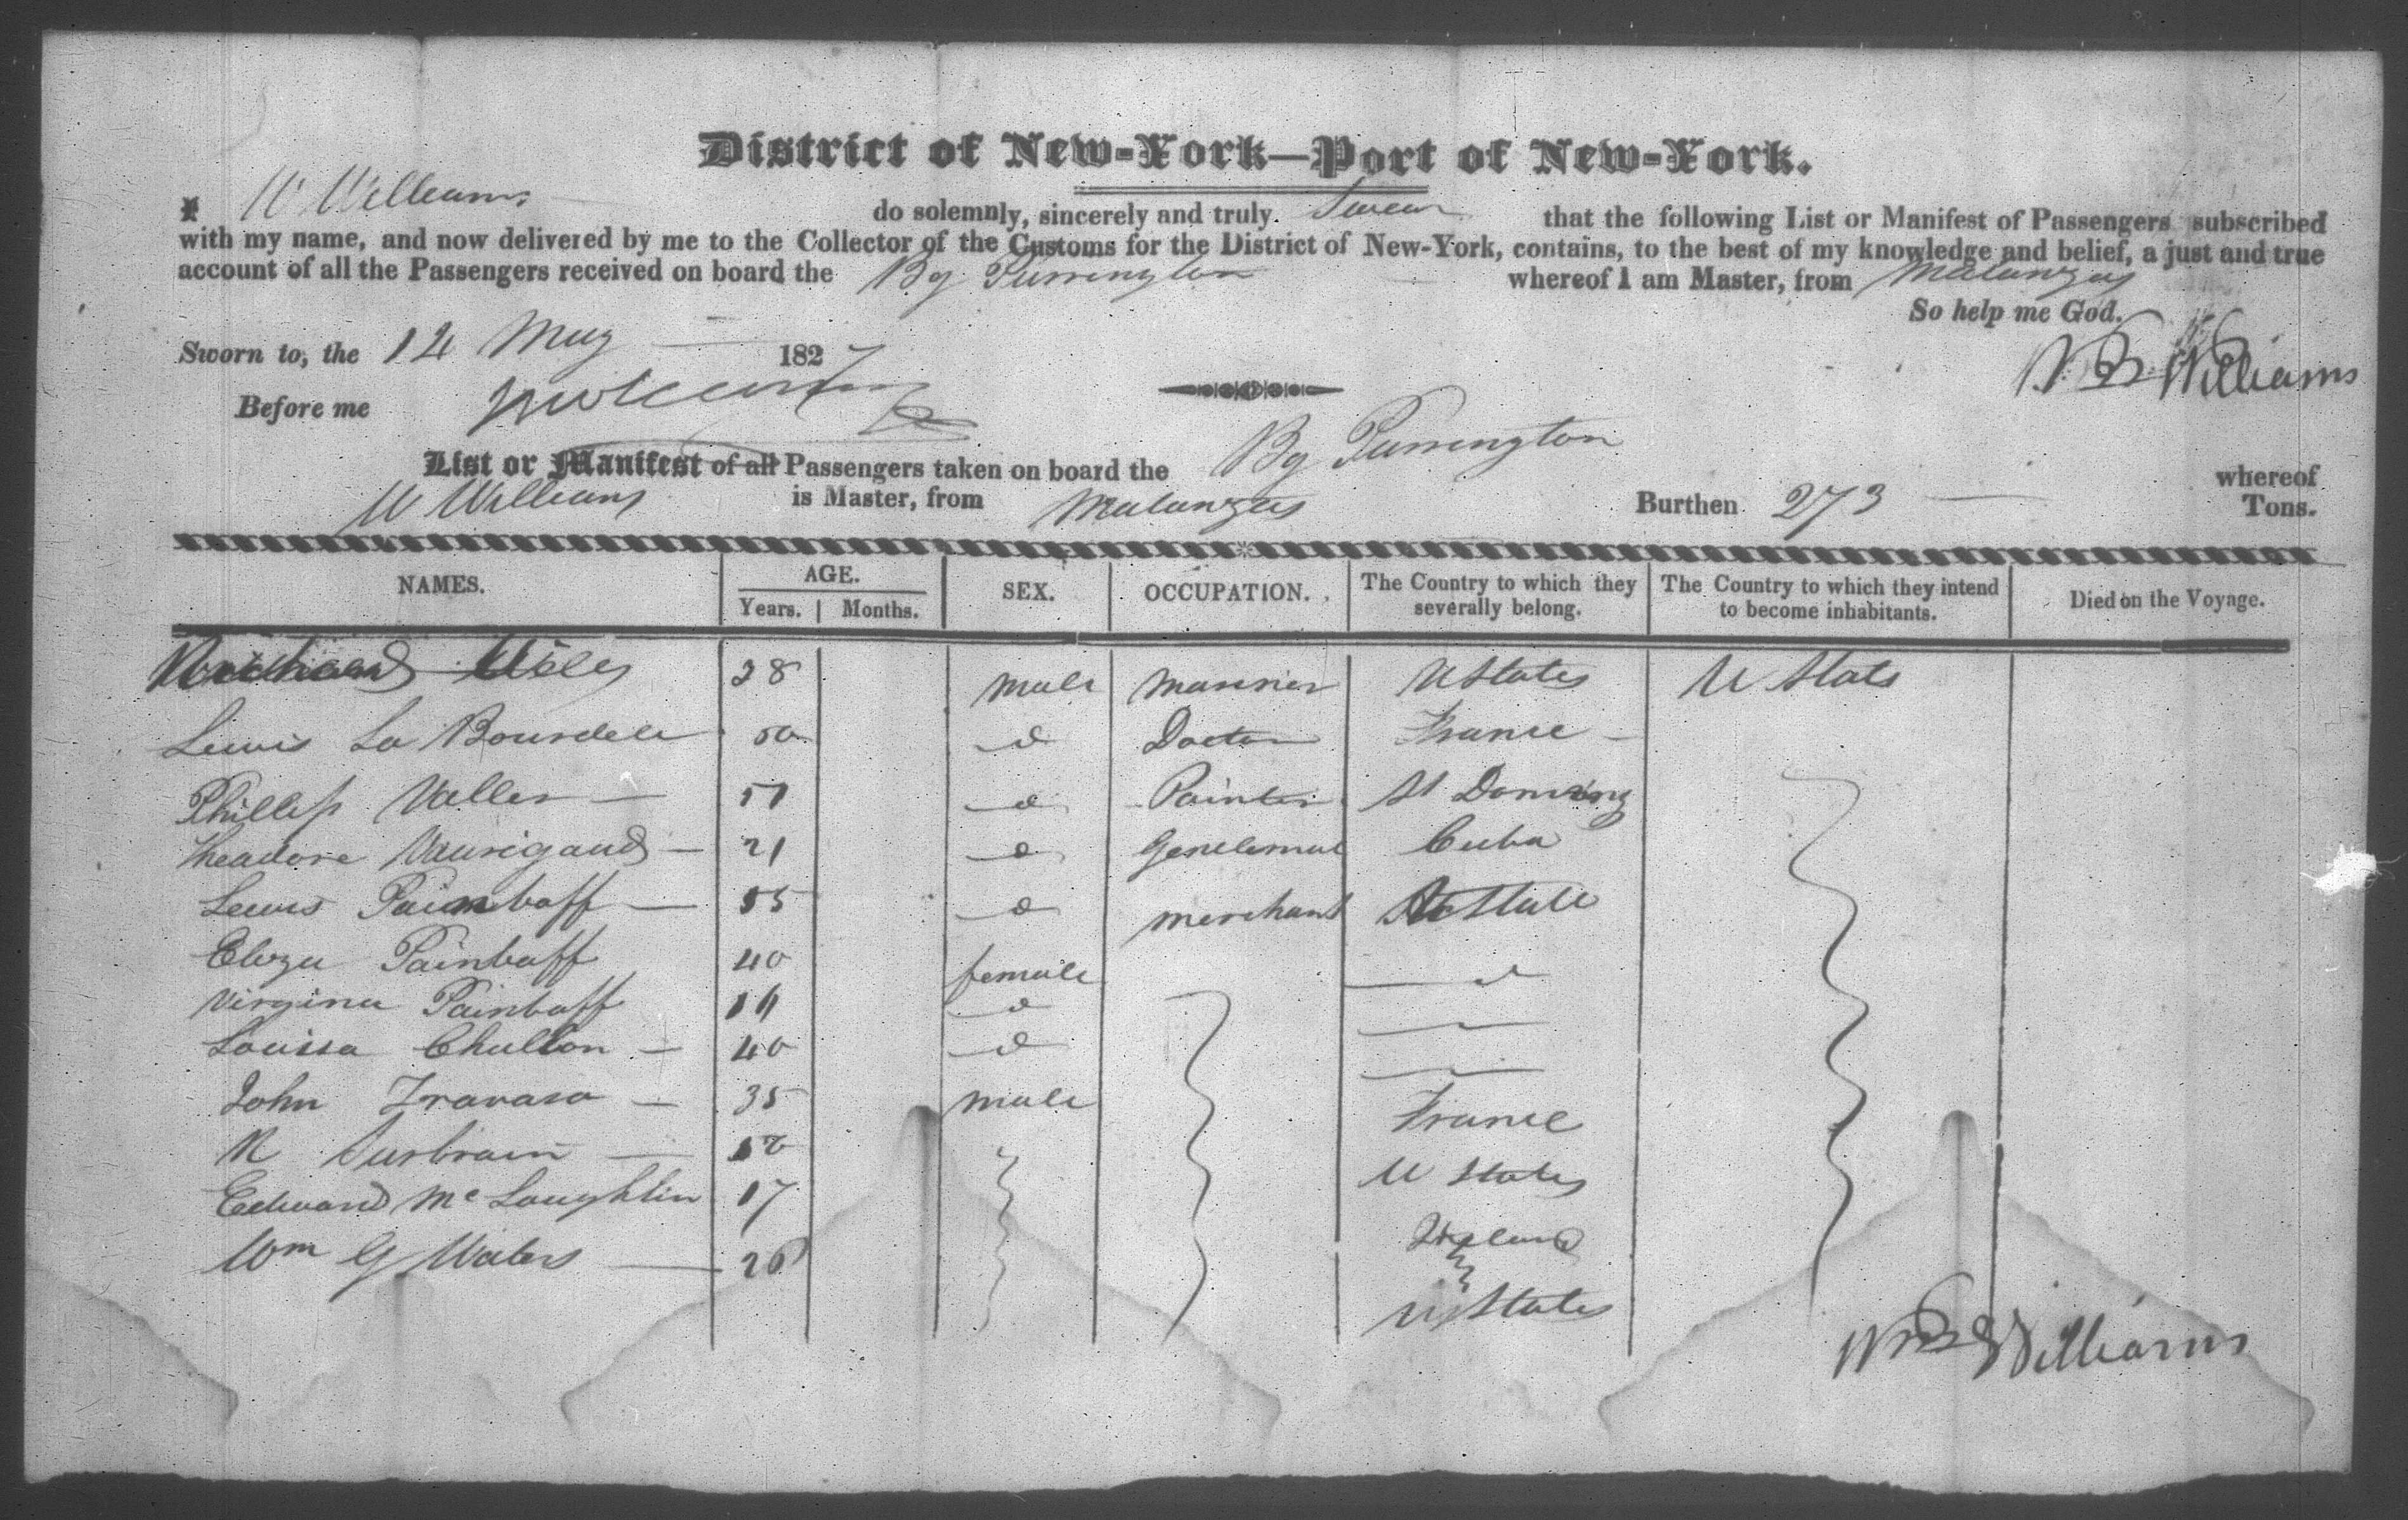 District of New-York—Port of New-York.
I W Williams do solemnly, sincerely and truly Swear that the following List or Manifest of Passengers subscribed
with my name, and now delivered by me to the Collector of the Customs for the District of New-York, contains, to the best of my knowledge and belief, a just and true
account of all the Passengers received on board the Bg Purrington whereof I am Master, from Matanzas
So help me God.
Sworn to, the 14 May 1827
W B Williams
Before me
List or Manifest of all Passengers taken on board the Bg Purrington whereof
W Williams is Master, from Matanzas Burthen 273 Tons.
NAMES. AGE. SEX. OCCUPATION. The Country to which they severally belong. The Country to which they intend to become inhabitants. Died on the Voyage.
Years. Months.
28 male mariner U States U State
Lewis La Bourdele 50 d Doctor France
Phillip Valler 51 d Painter St Domingo
Theadore Vaurigaud 21 d Gentleman Cuba
Lewis Paimboff 55 d merchant U State
Eliza Painboff 40 female d
Virginia Painboff d
Louissa Chullon 40 d
John Travasa 35 male France
R U States
Edward Mc Laughlin 17 Ireland
Wm G Waters 26 U States
Wm B Williams